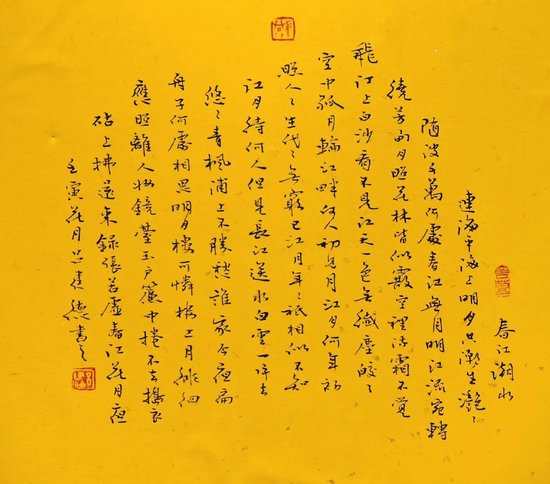 春江潮水
連海平海上明月共潮生灩〻
随波千萬何處春江無月明江流宛轉
繞芳甸月照花林皆似霰空裡流霜不覺
飛汀上白沙看不見江天一色無纖塵皎〻
空中孤月輪江畔何人初見月江月何年初
照人〻生代〻無窮已江月年〻祇相似不知
江月待何人但見長江送水白雲一片去
悠〻青楓浦上不勝愁誰家今夜扁
舟子何處相思明月樓可憐樓上月徘徊
應照離人妝鏡臺玉戶簾中捲不去擣衣
砧上拂還來錄張若虛春江花月夜
壬寅花月德書之